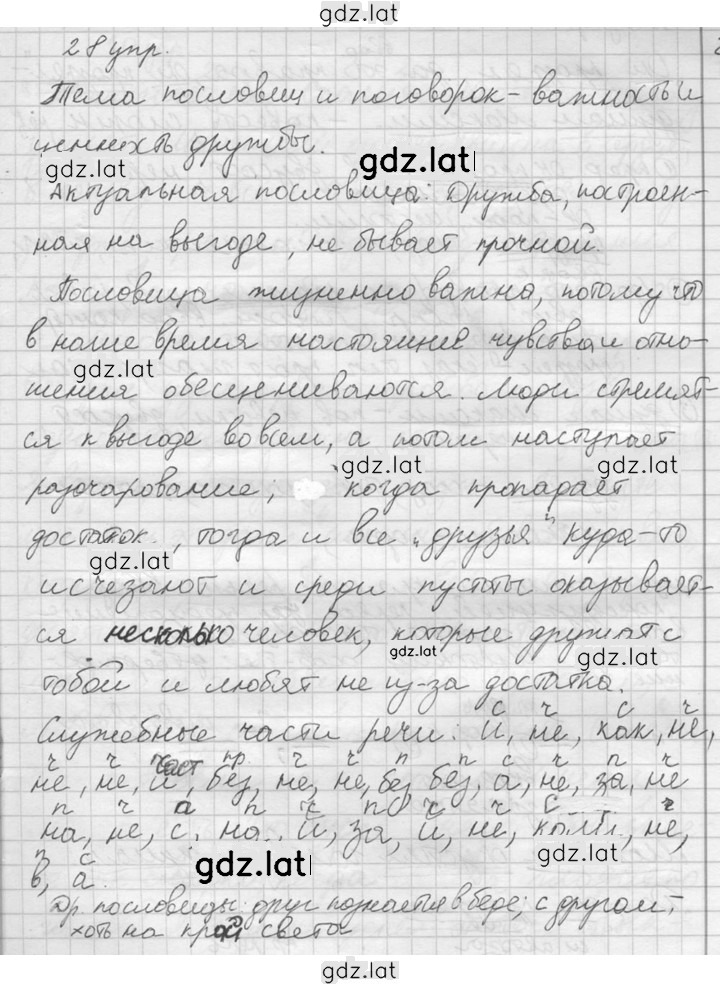 gdz.lat
28 упр.
Тема пословиц и поговорок - важность и
ценность дружбы.
gdz.lat
gdz.lat
Актуальная пословица: Дружба, построен-
ная на выгоде, не бывает прочной.
Пословица жизненно важна, потому что
в наше время настоящие чувства и отно-
gdz.lat
шения обесцениваются. Люди стремят-
ся к выгоде во всем, а потом наступает
gdz.lat
gdz.lat
разочарование; когда пропадает
достаток, тогда и все "друзья" куда-то
gdz.lat
исчезают и среди пустоты оказывает-
ся несколько человек, которые дружат с
gdz.lat
gdz.lat
тобой и любят не из-за достатка.
с ч с ч
Служебные части речи: И, не, как, не,
ч ч част пр. ч ч п п с ч п ч
не, не, и, без, не, не, без, без, а, не, за, не
п ч п ч п ч ч с ч
на, не, с, на, и, за, и, не, коли, не,
п с
в, а.
gdz.lat
Др. пословицы: друг познается в беде; с другом,
хоть на край света
gdz.lat